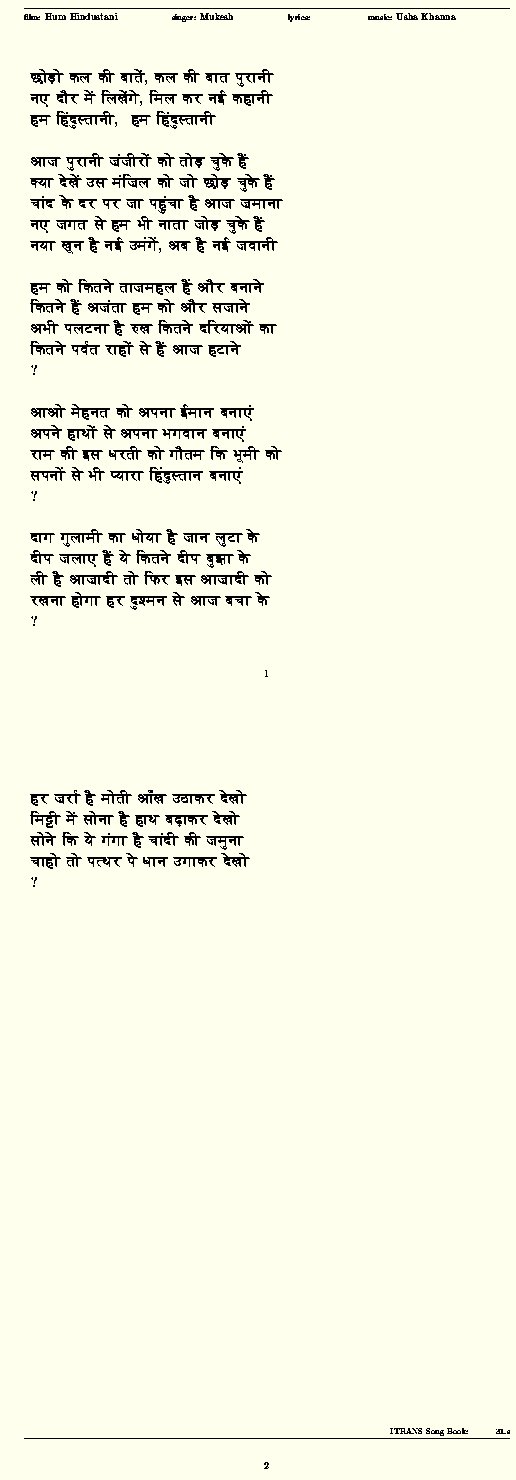 film: Hum Hindustani singer: Mukesh lyrics: music: Usha Khanna
छोड़ो कल की बातें, कल की बात पुरानी
नए दौर में लिखेंगे, मिल कर नई कहानी
हम हिंदुस्तानी, हम हिंदुस्तानी
आज पुरानी जंजीरों को तोड़ चुके हैं
क्या देखें उस मंजिल को जो छोड़ चुके हैं
चांद के दर पर जा पहुंचा है आज जमाना
नए जगत से हम भी नाता जोड़ चुके हैं
नया खून है नई उमंगें, अब है नई जवानी
हम को कितने ताजमहल हैं और बनाने
कितने हैं अजंता हम को और सजाने
अभी पलटना है रुख कितने दरियाओं का
कितने पर्वत राहों से हैं आज हटाने
?
आओ मेहनत को अपना ईमान बनाएं
अपने हाथों से अपना भगवान बनाएं
राम की इस धरती को गौतम कि भूमी को
सपनों से भी प्यारा हिंदुस्तान बनाएं
?
दाग गुलामी का धोया है जान लुटा के
दीप जलाए हैं ये कितने दीप बुझा के
ली है आजादी तो फिर इस आजादी को
रखना होगा हर दुश्मन से आज बचा के
?
1
हर जर्रा है मोती आँख उठाकर देखो
मिट्टी में सोना है हाथ बढ़ाकर देखो
सोने कि ये गंगा है चांदी की जमुना
चाहो तो पत्थर पे धान उगाकर देखो
?
ITRANS Song Book
2